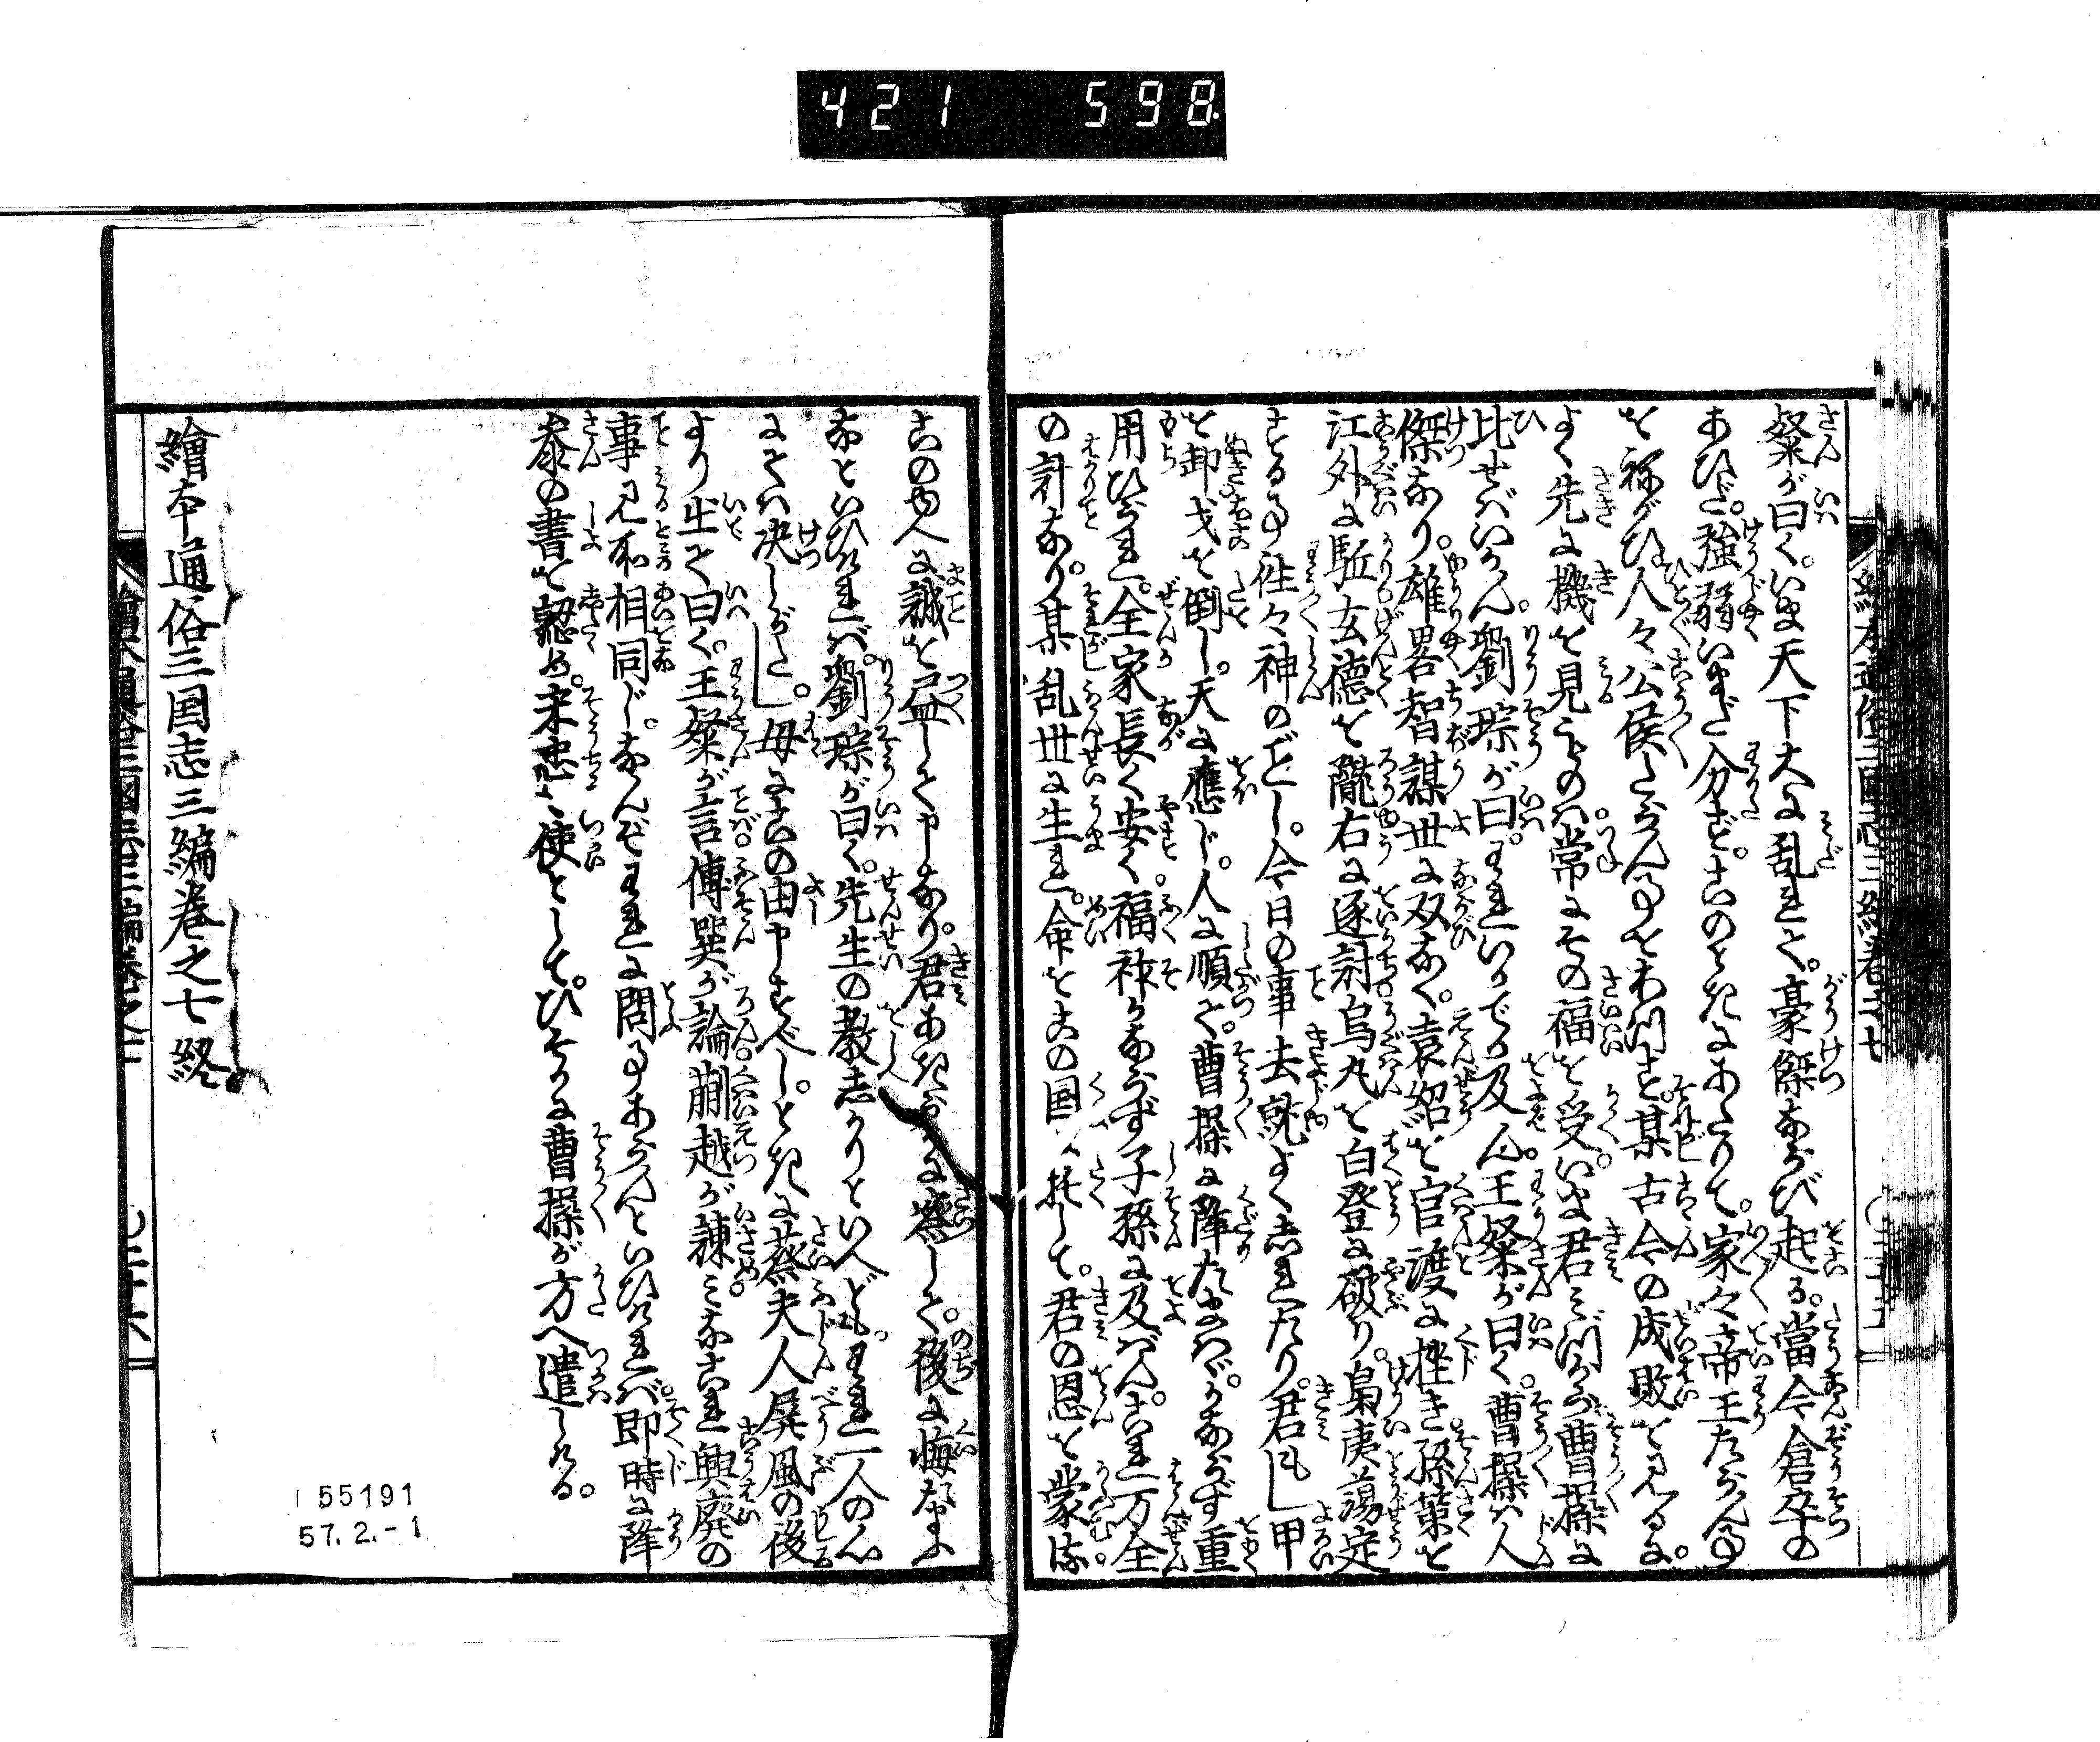 421 598
粲が曰く。いま天下大に乱れて。豪傑ならび起る。當今倉卒の
あひだ。強弱いまだ分ず。このときにあたりて。家々帝王たらん事
を祢がひ人々公侯たらん事をわすれず。某古今の成敗を見るに。
よく先に機を見るものハ。常にその福を受。いま君みづから曹操に
比せばいかん。劉琮が曰。われいかでか及ん。王粲が曰く。曹操ハ人
傑なり。雄畧智謀世に双なく。袁紹を官渡に挫き。孫策を
江外に駈。玄徳を隴右に逐。討烏丸を白登に破り。梟夷蕩定
する事往々神のごとし。今日の事去就よく志れたり。君もし甲
を卸戈を倒し。天に應じ。人に順て。曹操に降たまハゞ。かならず重
用ひられ。全家長く安く。福祚かならず子孫に及ばん。これ万全
の計なり。某乱世に生れ。命をこの国に托して。君の恩を蒙る
この由人に誠を尽して申なり。君あきらかに察して。後に悔たまふ
なといひければ。劉琮が曰く。先生の教志かりといへども。われ一人の心
にてハ决しがたし。母にこの由申すべし。ときに蔡夫人屏風の後
より出て曰く。王粲が言傅巽が論蒯越が諌ミなこれ興廃の
事見所相同じ。なんぞわれに問事あらんといひければ即時に降
参の書を認め。宋忠を使として。ひそかに曹操が方へ遣しける。
繪本通俗三国志三編巻之七終
155191
57.2.-1